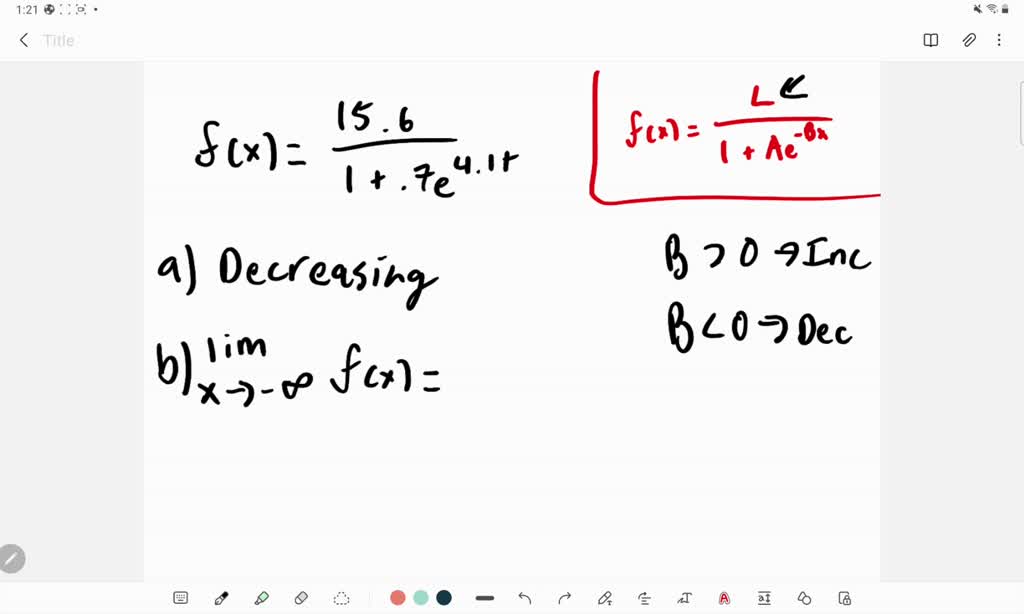 1:21
Title
f(x) = 15.6 / 1 + .7e^4.1t
f(x) = L / 1 + Ae^-Bx
a) Decreasing
B > 0 → Inc
B < 0 → Dec
b) lim x→-∞ f(x) =